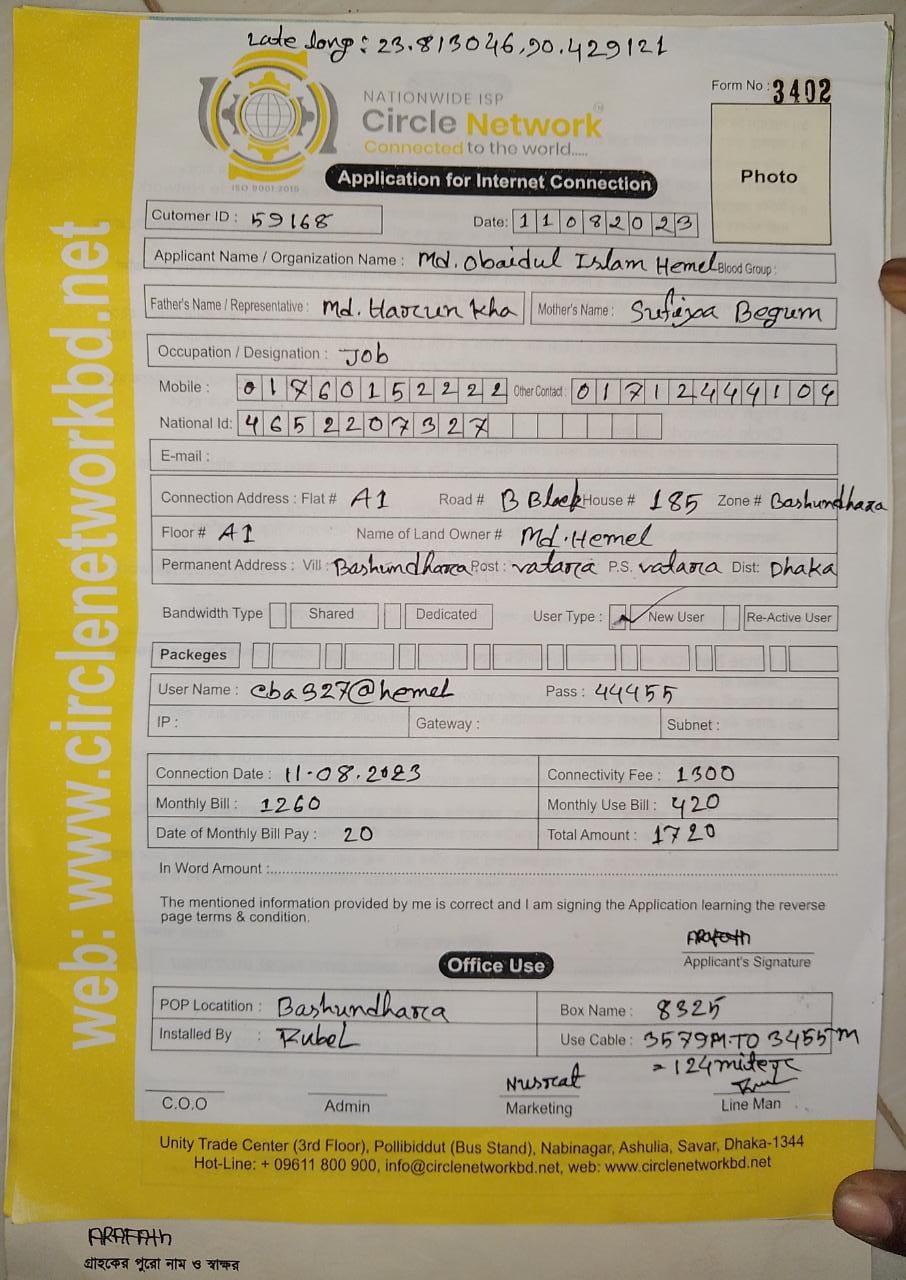 Late long: 23.813046,90.429121
Form No : 3402
NATIONWIDE ISP
Circle Network
Connected to the world.....
ISO 9001:2015
Application for Internet Connection
Photo
Cutomer ID : 59168 Date: 11082023
Applicant Name / Organization Name : Md. Obaidul Islam Hemel Blood Group :
Father's Name / Representative : Md. Harun Kha Mother's Name : Sufiya Begum
Occupation / Designation : Job
Mobile : 01760152222 Other Contact : 01712444104
National Id: 4652207327
E-mail :
Connection Address : Flat # A1 Road # B Block House # 185 Zone # Bashundhara
Floor # A1 Name of Land Owner # Md. Hemel
Permanent Address : Vill : Bashundhara Post : vatara P.S. vatara Dist: Dhaka
Bandwidth Type Shared Dedicated User Type : New User Re-Active User
Packeges
User Name : cba327@hemel Pass : 44455
IP : Gateway : Subnet :
Connection Date : 11-08.2023 Connectivity Fee : 1300
Monthly Bill : 1260 Monthly Use Bill : 420
Date of Monthly Bill Pay : 20 Total Amount : 1720
In Word Amount :
The mentioned information provided by me is correct and I am signing the Application learning the reverse
page terms & condition.
Arafath
Applicant's Signature
Office Use
POP Locatition : Bashundhara Box Name : 8325
Installed By : Rubel Use Cable : 3579M TO 3455M
= 124
Nusrat
C.O.O Admin Marketing Line Man
Unity Trade Center (3rd Floor), Pollibiddut (Bus Stand), Nabinagar, Ashulia, Savar, Dhaka-1344
Hot-Line: + 09611 800 900, info@circlenetworkbd.net, web: www.circlenetworkbd.net
web: www.circlenetworkbd.net
ARAFATh
গ্রাহকের পুরো নাম ও স্বাক্ষর